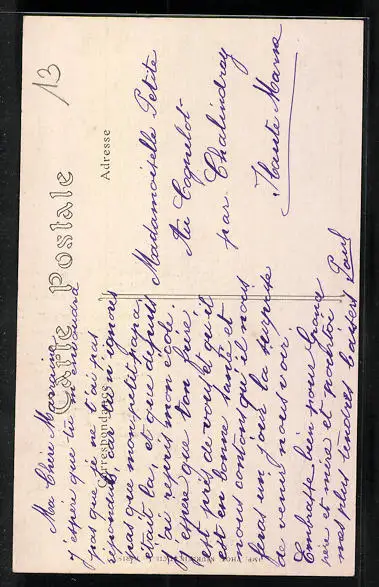 13
Carte Postale
Correspondance
Adresse
Ma Chère Marraine
j'espère que tu m'en voudra
pas que je ne t'ai pas
répondu, car tu n'ignore
pas que mon petit papa,
était là, et que depuis
j'ai repris mon école.
J'espère que ton frère
est près de vous et qu'il
est en bonne santé et
nous contons qu'il nous
feras un jour la surprise
de venir nous voir.
Embrasse bien pour Grand
père et mère et pour toi
nos plus tendres baisers Paul
Mademoiselle Petite
Au Coquelot
par Chalindrey
Haute Marne